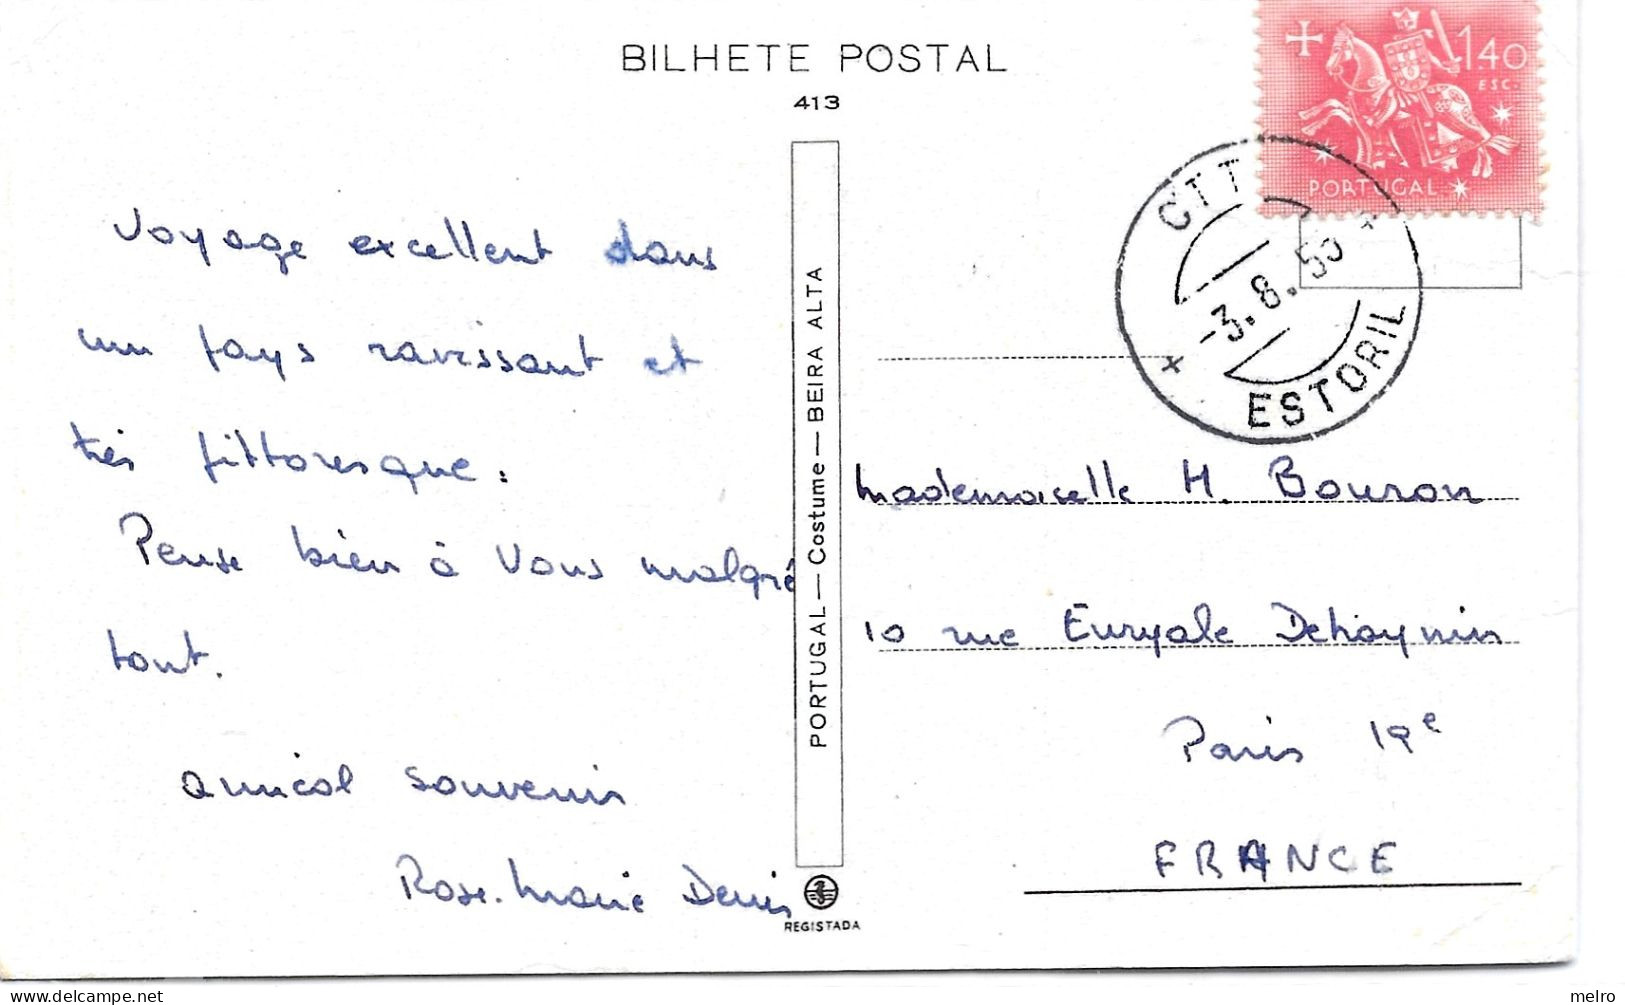 BILHETE POSTAL
413
1$40
ESC.
PORTUGAL
CTT
-3.8.55
ESTORIL
Voyage excellent dans
un pays ravissant et
très pittoresque.
Pense bien à vous malgré
tout.
amical souvenir
Rose-Marie Denis
PORTUGAL — Costume — BEIRA ALTA
REGISTADA
Mademoiselle H. Bouron
10 rue Euryale Dehaynin
Paris 19e
FRANCE
melro